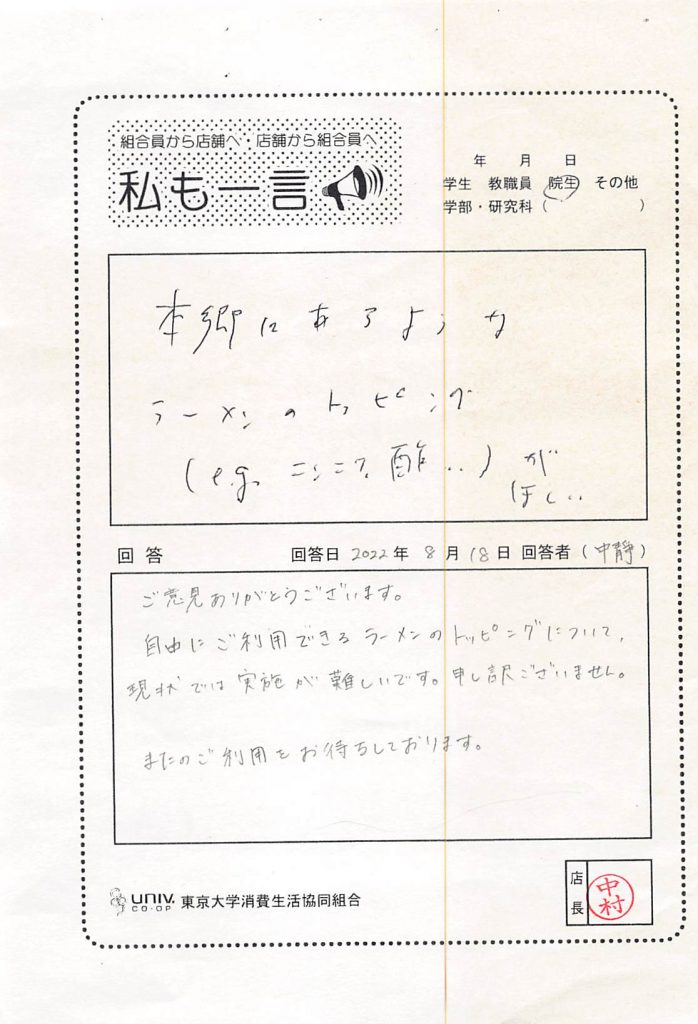 組合員から店舗へ・店舗から組合員へ
私も一言
年 月 日
学生 教職員 院生 その他
学部・研究科( )
本郷にあるような
ラーメンのトッピング
(e.g. ニンニク, 酢‥) が
ほしい‥
回答 回答日 2022年 8月18日 回答者(中静)
ご意見ありがとうございます。
自由にご利用できるラーメンのトッピングについて、
現状では実施が難しいです。申し訳ございません。
またのご利用をお待ちしております。
UNIV. CO-OP 東京大学消費生活協同組合
店長
中村